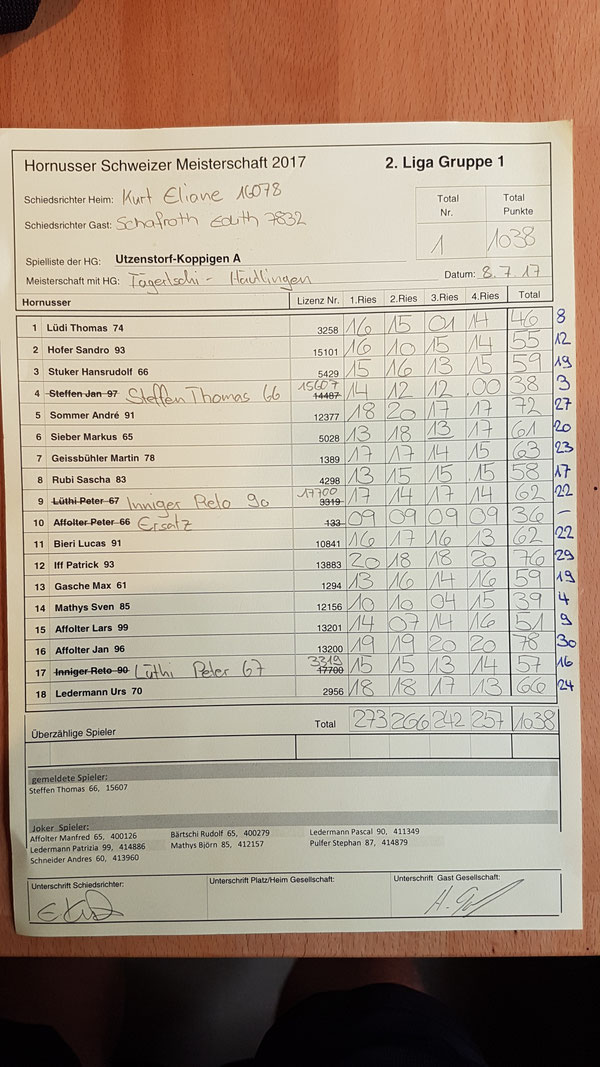 Hornusser Schweizer Meisterschaft 2017 2. Liga Gruppe 1
Schiedsrichter Heim: Kurt Eliane 16078
Schiedsrichter Gast: Schafroth Edith 7832
Total Nr. Total Punkte
1 1038
Spielliste der HG: Utzenstorf-Koppigen A
Meisterschaft mit HG: Tägertschi - Häutlingen Datum: 8.7.17
Hornusser Lizenz Nr. 1.Ries 2.Ries 3.Ries 4.Ries Total
1 Lüdi Thomas 74 3258 16 15 01 14 46 8
2 Hofer Sandro 93 15101 16 10 15 14 55 12
3 Stuker Hansrudolf 66 5429 15 16 13 15 59 19
4 Steffen Jan 97 Steffen Thomas 66 15607 14487 14 12 12 00 38 3
5 Sommer André 91 12377 18 20 17 17 72 27
6 Sieber Markus 65 5028 13 18 13 17 61 20
7 Geissbühler Martin 78 1389 17 17 14 15 63 23
8 Rubi Sascha 83 4298 13 15 15 15 58 17
9 Lüthi Peter 67 Inniger Reto 90 17700 3319 17 14 17 14 62 22
10 Affolter Peter 66 Ersatz 133 09 09 09 09 36 -
11 Bieri Lucas 91 10841 16 17 16 13 62 22
12 Iff Patrick 93 13883 20 18 18 20 76 29
13 Gasche Max 61 1294 13 16 14 16 59 19
14 Mathys Sven 85 12156 10 10 04 15 39 4
15 Affolter Lars 99 13201 14 07 14 16 51 9
16 Affolter Jan 96 13200 19 19 20 20 78 30
17 Inniger Reto 90 Lüthi Peter 67 3319 17700 15 15 13 14 57 16
18 Ledermann Urs 70 2956 18 18 17 13 66 24
Überzählige Spieler Total 273 266 242 257 1038
gemeldete Spieler:
Steffen Thomas 66, 15607
Joker Spieler:
Affolter Manfred 65, 400126 Bärtschi Rudolf 65, 400279 Ledermann Pascal 90, 411349
Ledermann Patrizia 99, 414886 Mathys Björn 85, 412157 Pulfer Stephan 87, 414879
Schneider Andres 60, 413960
Unterschrift Schiedsrichter: Unterschrift Platz/Heim Gesellschaft: Unterschrift Gast Gesellschaft: